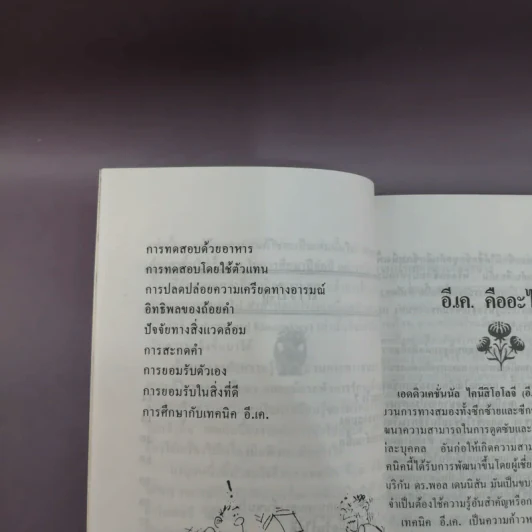 การทดสอบด้วยอาหาร
การทดสอบโดยใช้ตัวแทน
การปลดปล่อยความเครียดทางอารมณ์
อิทธิพลของถ้อยคำ
ปัจจัยทางสิ่งแวดล้อม
การสะกดคำ
การยอมรับตัวเอง
การยอมรับในสิ่งที่ดี
การศึกษากับเทคนิค อี.เค.
อี.เค. คืออะไ
เอดดิวเคชั่นนัล ไคนีสิโอโลจี (อี
บวนการทางสมองทั้งซีกซ้ายและซีก
ฒนาความสามารถในการดูดซับและ
ต่ละบุคคล อันก่อให้เกิดความสาม
คนิคนี้ได้รับการพัฒนาขึ้นโดยผู้เชี่ย
มริกัน ดร.พอล เดนนิสัน มันเป็นขบ
จำเป็นต้องใช้ความรู้อันสำคัญหรือก
เทคนิค อี.เค. เป็นความก้าวห